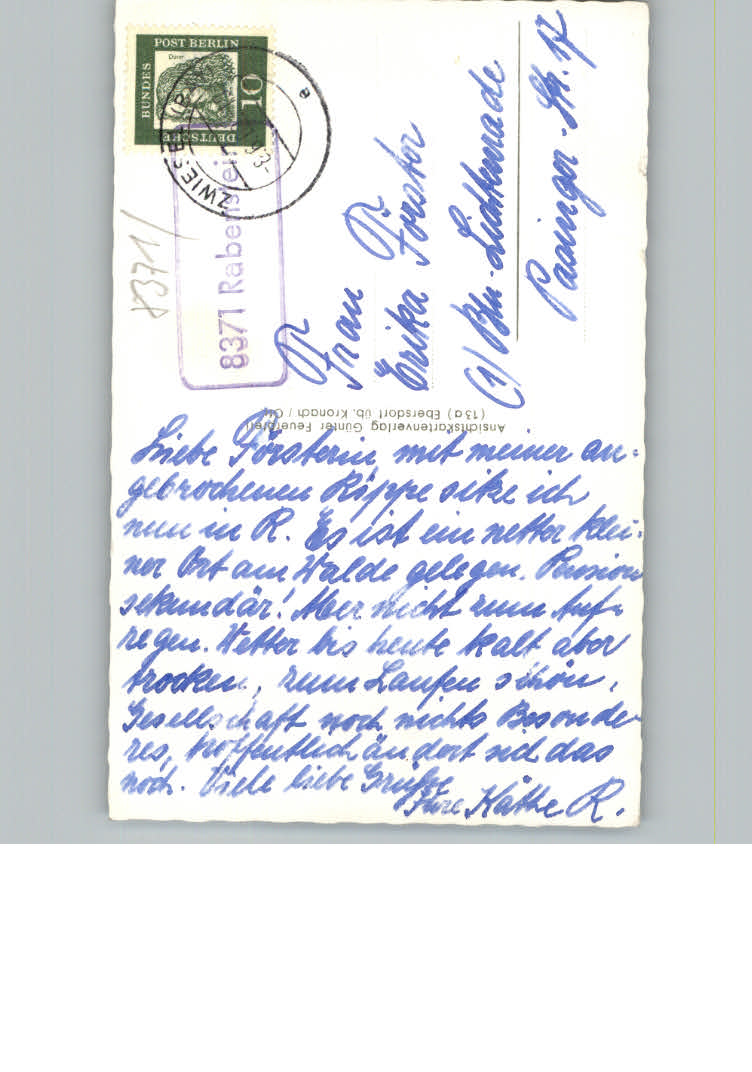 DEUTSCHE
BUNDES
POST BERLIN
Dürer
10
ZWIESEL
e
8371 Rabenstein
8371/
F
Frau F
Erika Förster
(1) Bln-Lichtenrade
Pasinger-Str. 17
Ansichtskartenverlag Günter Feuerpfeil
(13a) Ebersdorf üb. Kronach / Ofr.
Liebe Försterin, mit meiner an-
gebrochenen Rippe sitze ich
nun in R. Es ist ein netter klei-
ner Ort am Walde gelegen. Pension
sekundär! Aber nicht zum Auf-
regen. Wetter bis heute kalt aber
trocken, zum Laufen schön,
Gesellschaft noch nichts Besonde-
res, hoffentlich ändert sich das
noch. Viele liebe Grüße
Ihre Käthe R.